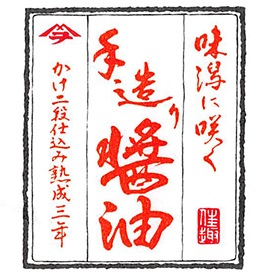 味潟に咲く
手造り
醬油
かけ二段仕込み熟成三年